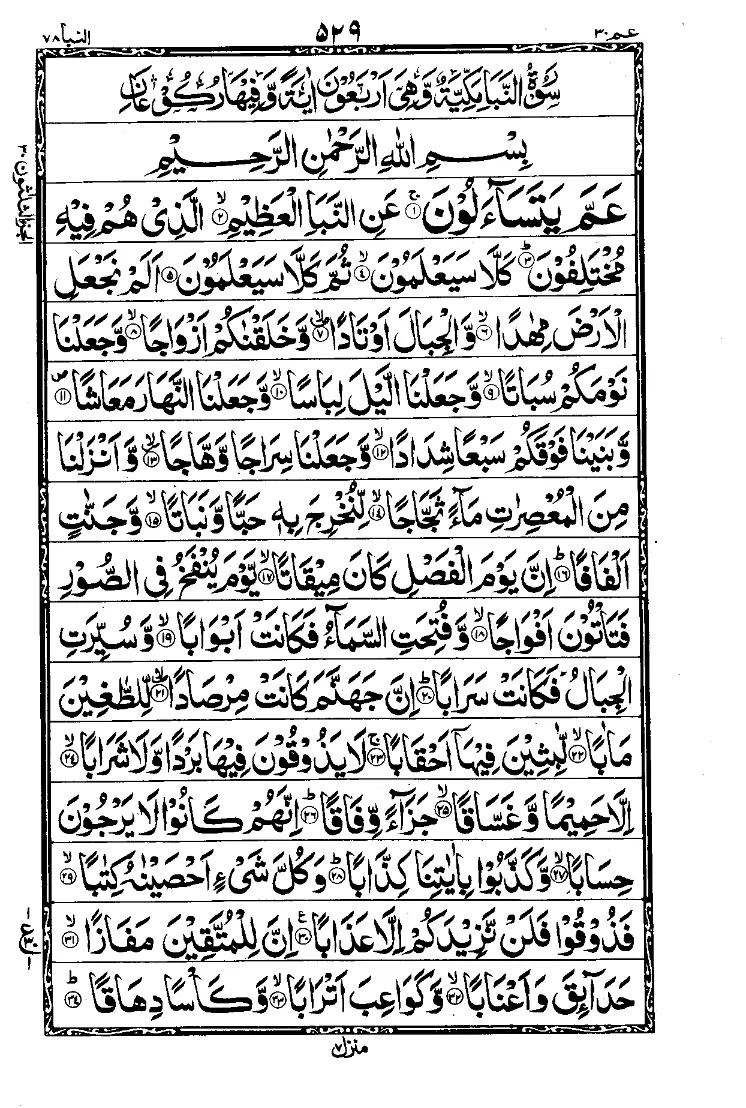 عم ٣٠
٥٢٩
النبا ٧٨
سُوْرَةُ النَّبَاِ مَكِّيَّةٌ وَّهِيَ اَرْبَعُوْنَ اٰيَةً وَّفِيْهَا رُكُوْعَانِ
بِسْمِ اللّٰهِ الرَّحْمٰنِ الرَّحِيْمِ
عَمَّ يَتَسَآءَلُوْنَ ۚ﴿۱﴾ عَنِ النَّبَاِ الْعَظِيْمِ ۙ﴿۲﴾ الَّذِيْ هُمْ فِيْهِ
مُخْتَلِفُوْنَ ؕ﴿۳﴾ كَلَّا سَيَعْلَمُوْنَ ۙ﴿۴﴾ ثُمَّ كَلَّا سَيَعْلَمُوْنَ ﴿۵﴾ اَلَمْ نَجْعَلِ
الْاَرْضَ مِهٰدًا ۙ﴿۶﴾ وَّالْجِبَالَ اَوْتَادًا ۪ۙ﴿۷﴾ وَّخَلَقْنٰكُمْ اَزْوَاجًا ۙ﴿۸﴾ وَّجَعَلْنَا
نَوْمَكُمْ سُبَاتًا ۙ﴿۹﴾ وَّجَعَلْنَا الَّيْلَ لِبَاسًا ۙ﴿۱۰﴾ وَّجَعَلْنَا النَّهَارَ مَعَاشًا ۪﴿۱۱﴾
وَّبَنَيْنَا فَوْقَكُمْ سَبْعًا شِدَادًا ۙ﴿۱۲﴾ وَّجَعَلْنَا سِرَاجًا وَّهَّاجًا ۪ۙ﴿۱۳﴾ وَّاَنْزَلْنَا
مِنَ الْمُعْصِرٰتِ مَآءً ثَجَّاجًا ۙ﴿۱۴﴾ لِّنُخْرِجَ بِهٖ حَبًّا وَّنَبَاتًا ۙ﴿۱۵﴾ وَّجَنّٰتٍ
اَلْفَافًا ؕ﴿۱۶﴾ اِنَّ يَوْمَ الْفَصْلِ كَانَ مِيْقَاتًا ۙ﴿۱۷﴾ يَّوْمَ يُنْفَخُ فِي الصُّوْرِ
فَتَاْتُوْنَ اَفْوَاجًا ۙ﴿۱۸﴾ وَّفُتِحَتِ السَّمَآءُ فَكَانَتْ اَبْوَابًا ۙ﴿۱۹﴾ وَّسُيِّرَتِ
الْجِبَالُ فَكَانَتْ سَرَابًا ؕ﴿۲۰﴾ اِنَّ جَهَنَّمَ كَانَتْ مِرْصَادًا ۪ۙ﴿۲۱﴾ لِّلطّٰغِيْنَ
مَاٰبًا ۙ﴿۲۲﴾ لّٰبِثِيْنَ فِيْهَآ اَحْقَابًا ۚ﴿۲۳﴾ لَا يَذُوْقُوْنَ فِيْهَا بَرْدًا وَّلَا شَرَابًا ۙ﴿۲۴﴾
اِلَّا حَمِيْمًا وَّغَسَّاقًا ۙ﴿۲۵﴾ جَزَآءً وِّفَاقًا ؕ﴿۲۶﴾ اِنَّهُمْ كَانُوْا لَا يَرْجُوْنَ
حِسَابًا ۙ﴿۲۷﴾ وَّكَذَّبُوْا بِاٰيٰتِنَا كِذَّابًا ؕ﴿۲۸﴾ وَكُلَّ شَيْءٍ اَحْصَيْنٰهُ كِتٰبًا ۙ﴿۲۹﴾
فَذُوْقُوْا فَلَنْ نَّزِيْدَكُمْ اِلَّا عَذَابًا ﴿۳۰﴾ ع اِنَّ لِلْمُتَّقِيْنَ مَفَازًا ۙ﴿۳۱﴾
حَدَآئِقَ وَاَعْنَابًا ۙ﴿۳۲﴾ وَّكَوَاعِبَ اَتْرَابًا ۙ﴿۳۳﴾ وَّكَاْسًا دِهَاقًا ؕ﴿۳۴﴾
منزل ٧
الجزء الثلثون ٣٠